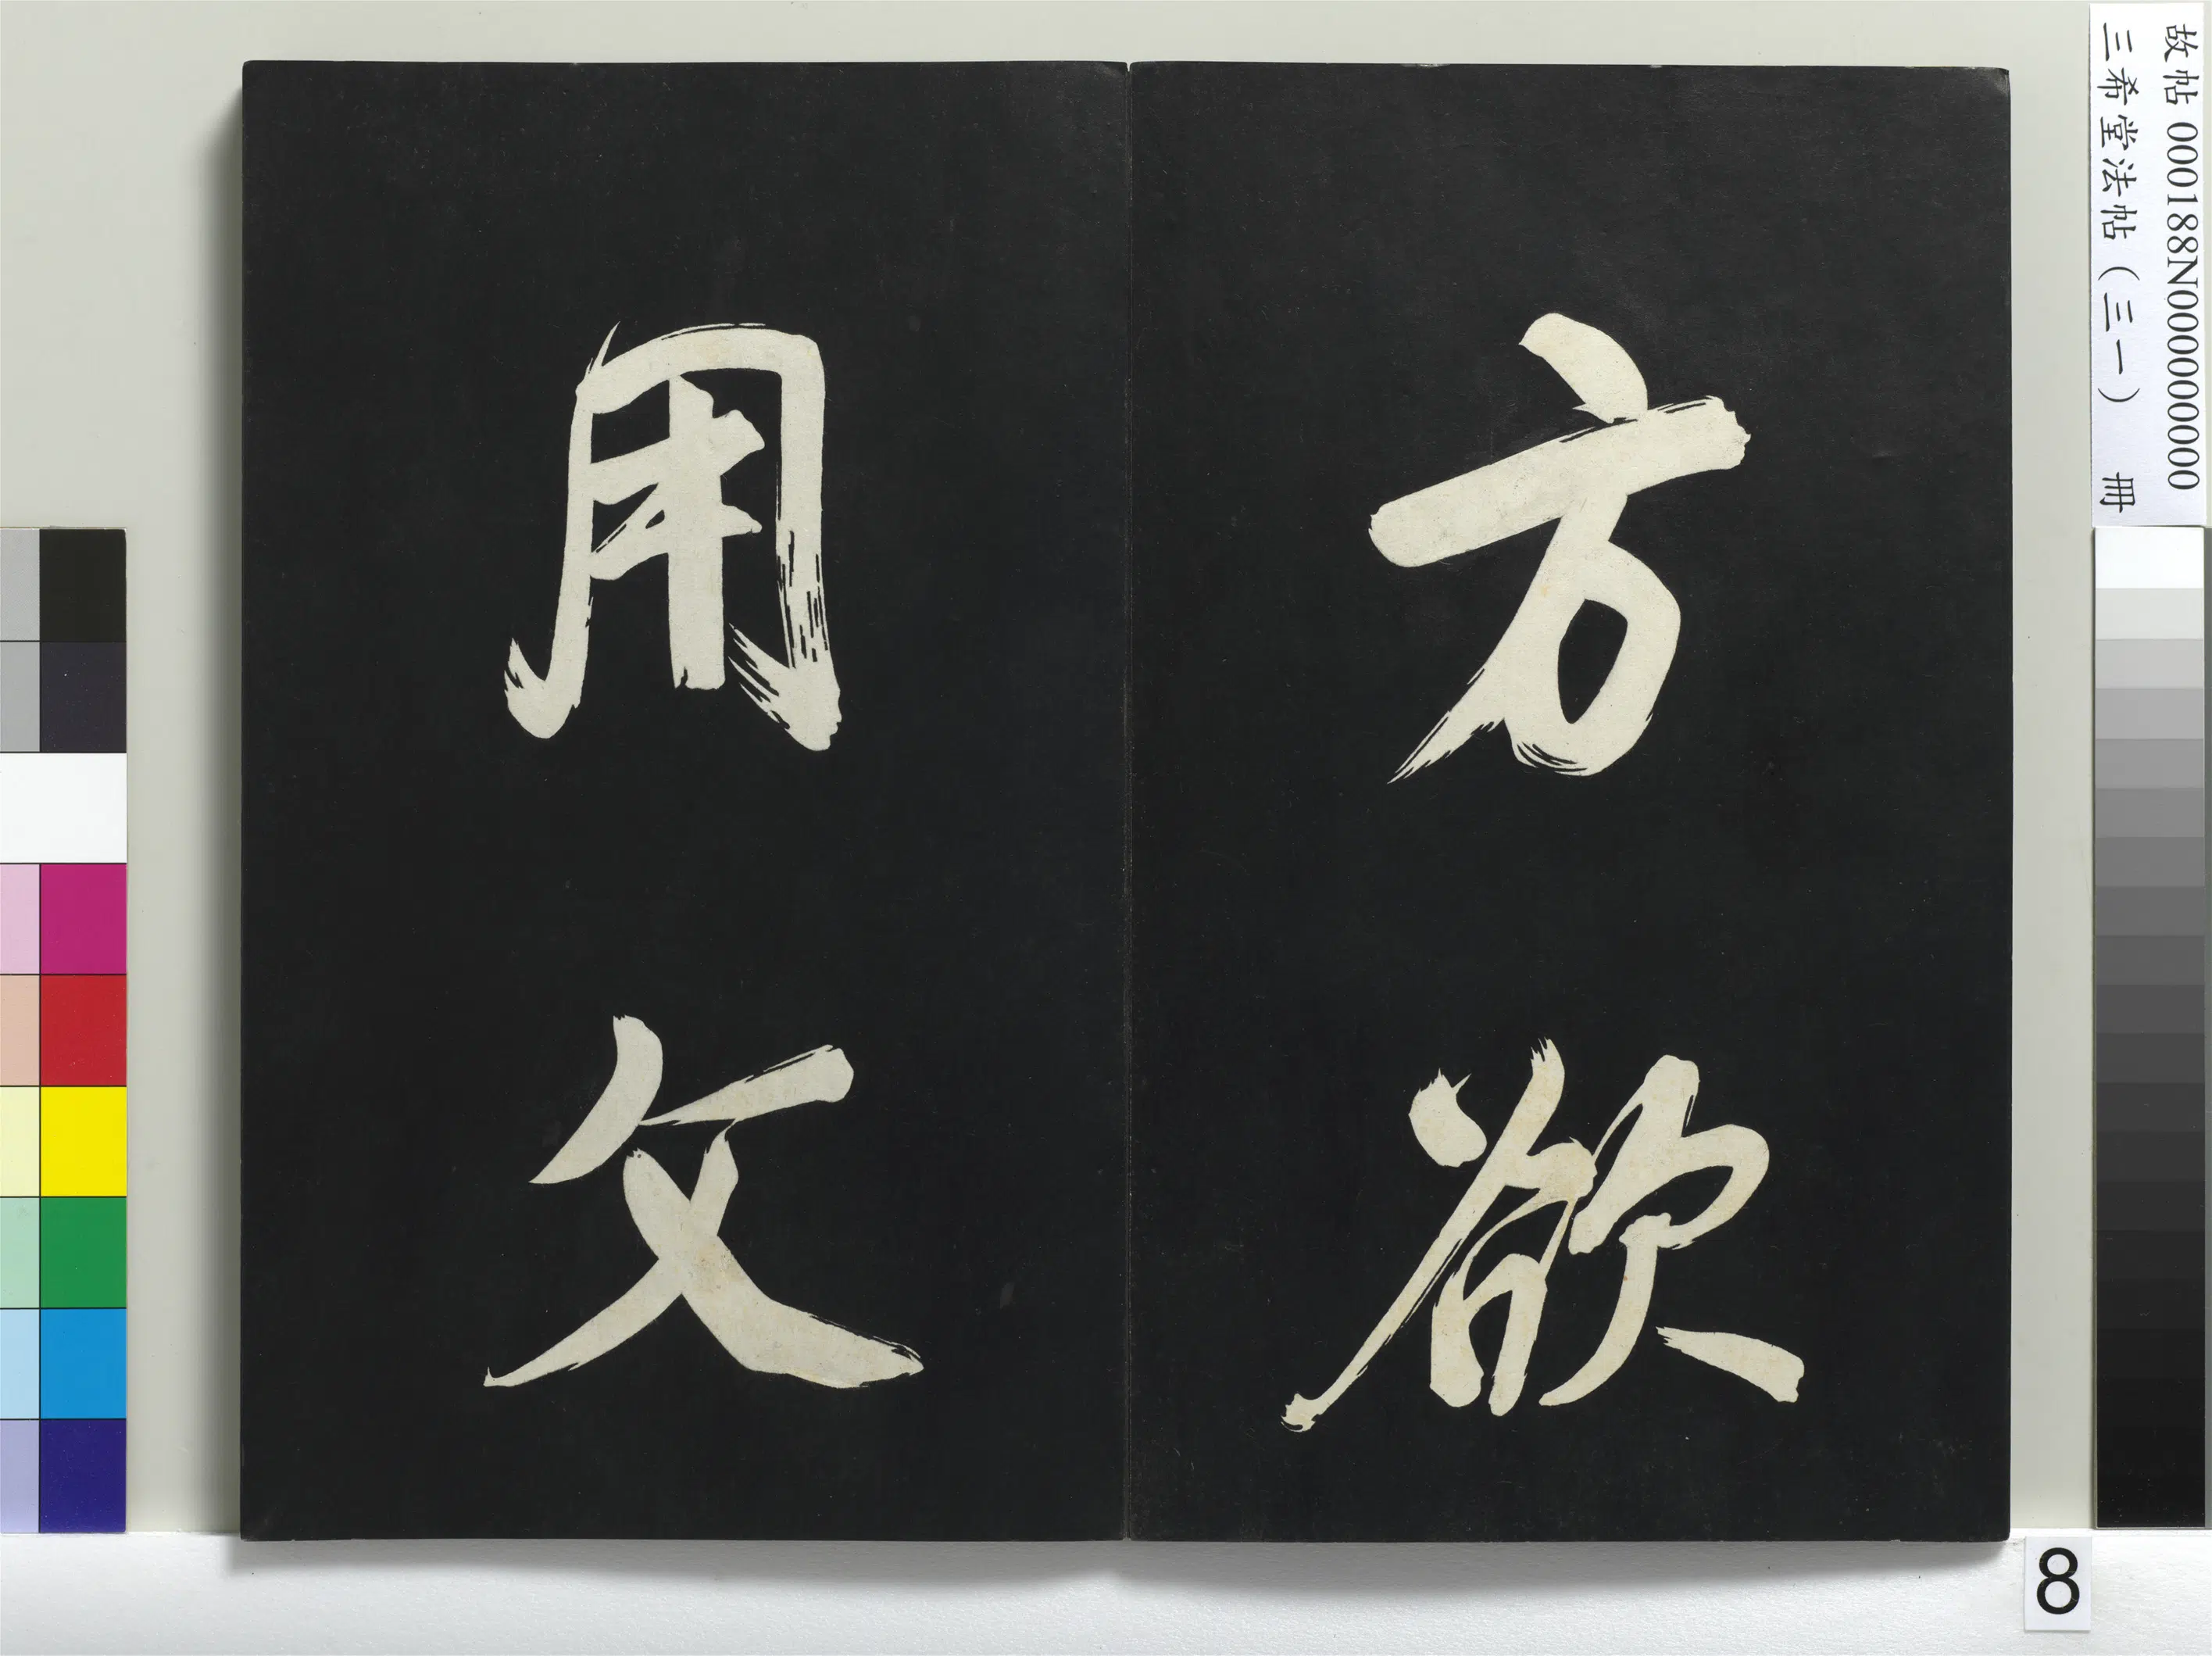 方欲
用文
故帖 000188N000000000
三希堂法帖（三一） 冊
8